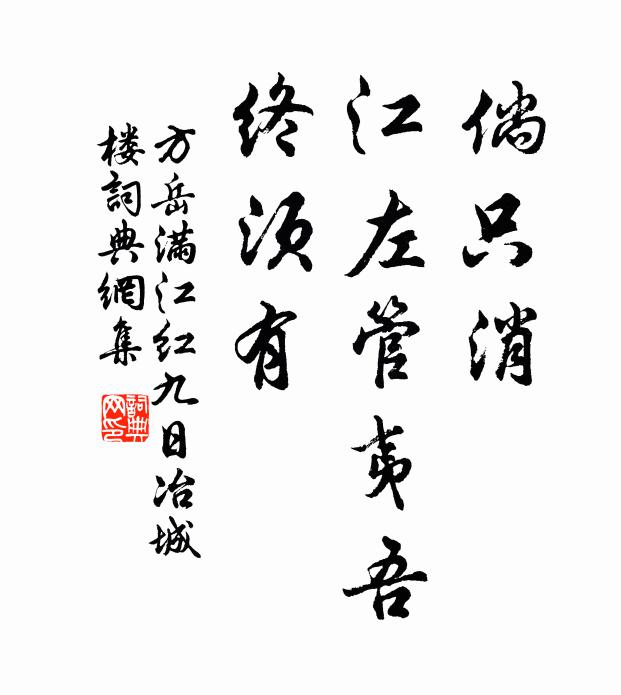 倘只消
江左管夷吾
终须有
方岳满江红九日冶城
楼詞典網集
詞典
网印